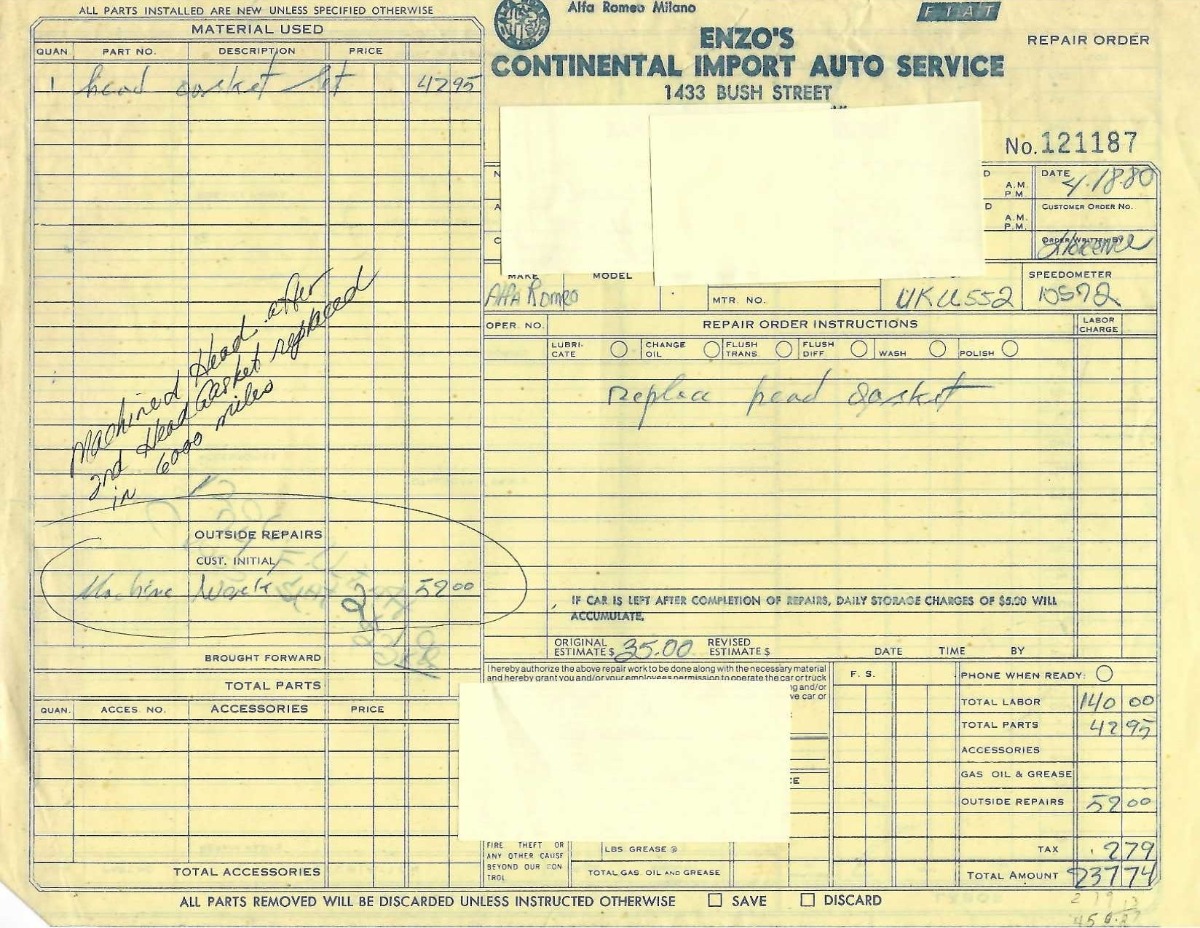 ALL PARTS INSTALLED ARE NEW UNLESS SPECIFIED OTHERWISE
MATERIAL USED
QUAN. PART NO. DESCRIPTION PRICE
1 head gasket set 42 95
Machined Head after
2nd Head Gasket replaced
in 6000 miles
OUTSIDE REPAIRS
CUST. INITIAL
Machine Work 52 00
BROUGHT FORWARD
TOTAL PARTS
QUAN. ACCES. NO. ACCESSORIES PRICE
TOTAL ACCESSORIES
Alfa Romeo Milano
FIAT
ENZO'S
CONTINENTAL IMPORT AUTO SERVICE
1433 BUSH STREET
REPAIR ORDER
No. 121187
A.M.
P.M.
DATE 4.18.80
CUSTOMER ORDER No.
A.M.
P.M.
ORDER WRITTEN BY
MAKE MODEL SPEEDOMETER
Alfa Romeo MTR. NO. UKU552 10572
OPER. NO. REPAIR ORDER INSTRUCTIONS LABOR CHARGE
LUBRICATE CHANGE OIL FLUSH TRANS. FLUSH DIFF WASH POLISH
replace head gasket
IF CAR IS LEFT AFTER COMPLETION OF REPAIRS, DAILY STORAGE CHARGES OF $5.00 WILL
ACCUMULATE.
ORIGINAL ESTIMATE $ 35.00 REVISED ESTIMATE $ DATE TIME BY
I hereby authorize the above repair work to be done along with the necessary material
and hereby grant you and/or your employees permission to operate the car or truck
ng and/or
ve car or
F. S. PHONE WHEN READY:
TOTAL LABOR 140 00
TOTAL PARTS 42 95
ACCESSORIES
GAS OIL & GREASE
OUTSIDE REPAIRS 52 00
TAX 2 79
TOTAL AMOUNT 237 74
FIRE THEFT OR
ANY OTHER CAUSE
BEYOND OUR CON
TROL
LBS GREASE @
TOTAL GAS, OIL AND GREASE
ALL PARTS REMOVED WILL BE DISCARDED UNLESS INSTRUCTED OTHERWISE SAVE DISCARD